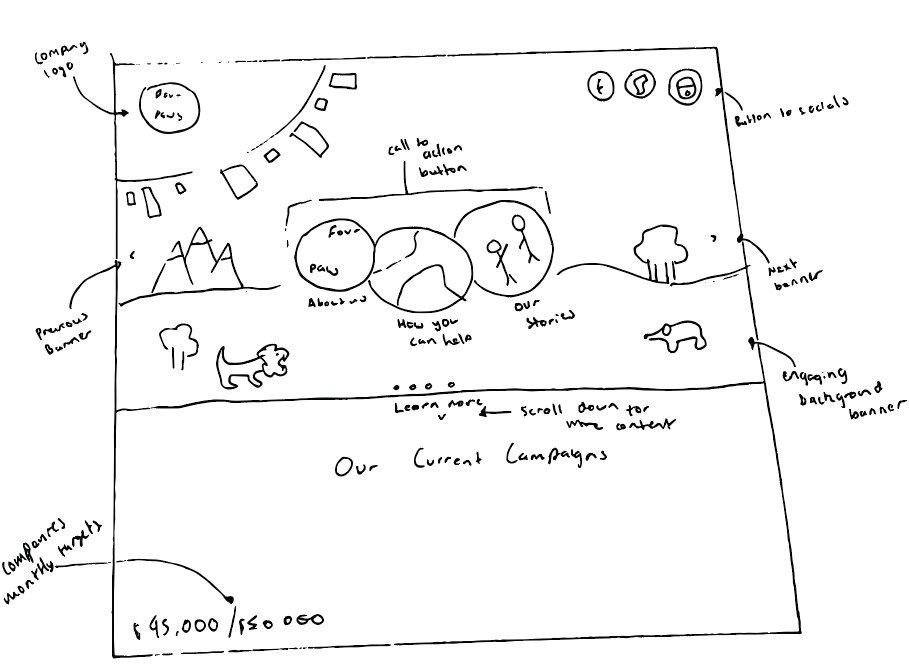 company
logo
Four
Paws
f
Button to socials
call to
action
button
Four
Paw
About us
How you
can help
our
stories
‹
›
Previous
Banner
Next
banner
engaging
background
banner
Learn more
scroll down for
more content
Our Current Campaigns
companies
monthly targets
$45,000 / $50 000